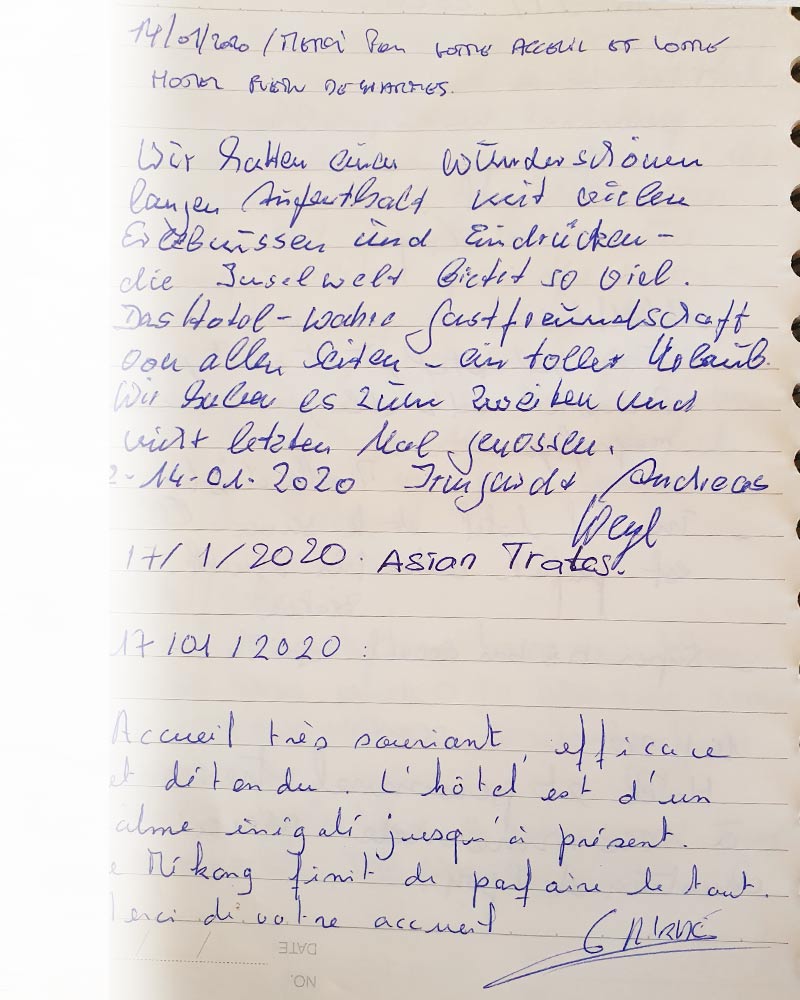 14/01/2020 / Merci Pour votre accueil et votre
Hostel plein de charmes.
Wir hatten einen wunderschönen
langen Aufenthalt mit vielen
Erlebnissen und Eindrücken –
die Inselwelt bietet so viel.
Das Hotel – wahre Gastfreundschaft
von allen Seiten – ein toller Urlaub.
Wir haben es zum zweiten und
nicht letzten Mal genossen.
2-14-01-2020 Irmgard + Andreas
Weyl
17/1/2020. Asian Trates.
17/01/2020 :
Accueil très souriant, efficace
et détendu. L'hôtel est d'un
alme inégalé jusqu'à présent.
e Mékong finit de parfaire le tout.
erci de votre accueil
DATE
NO.